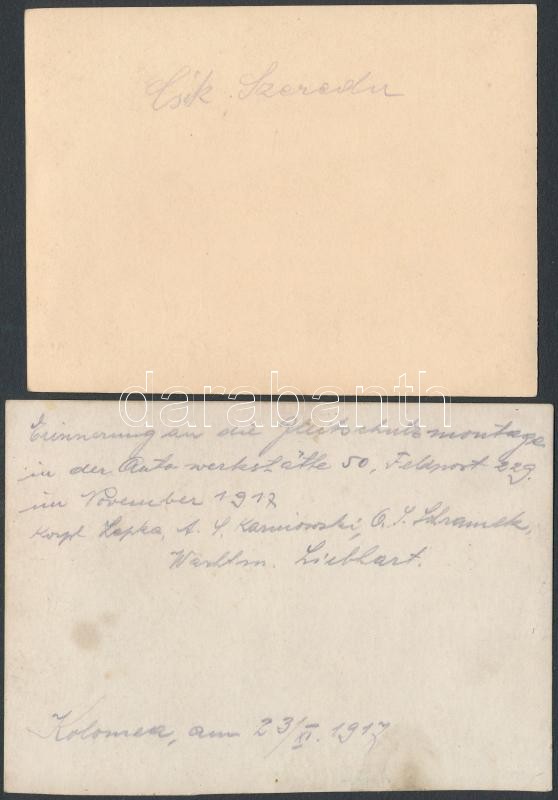 Csik Szereda
darabanth
Erinnerung an die Gleitschutzmontage
in der Auto werkstätte 50, Feldpost 229.
im November 1917
Korpl Lapka, A. S. Karniowski, O. S. Schramek,
Wachtm. Liebhart.
Kolomea, am 23/XI. 1917